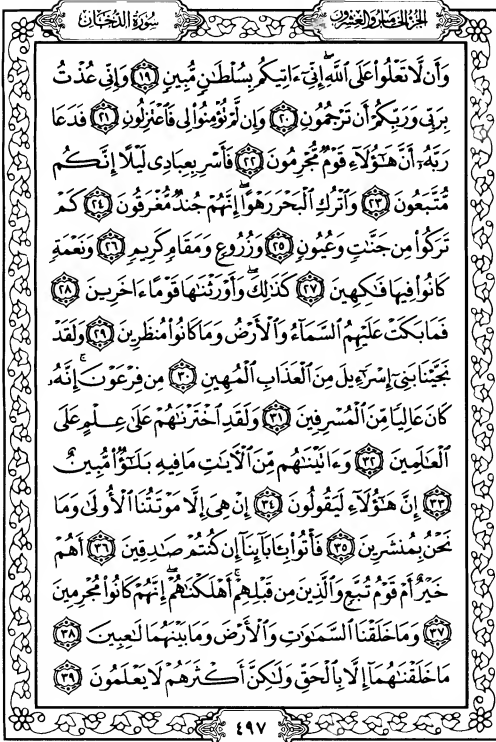 سُورَةُ الدُّخَانِ
الجُزءُ الخَامِسُ وَالعِشْرُونَ
وَأَن لَّا تَعْلُوا۟ عَلَى ٱللَّهِ ۖ إِنِّىٓ ءَاتِيكُم بِسُلْطَٰنٍ مُّبِينٍ ١٩ وَإِنِّى عُذْتُ
بِرَبِّى وَرَبِّكُمْ أَن تَرْجُمُونِ ٢٠ وَإِن لَّمْ تُؤْمِنُوا۟ لِى فَٱعْتَزِلُونِ ٢١ فَدَعَا
رَبَّهُۥٓ أَنَّ هَٰٓؤُلَآءِ قَوْمٌ مُّجْرِمُونَ ٢٢ فَأَسْرِ بِعِبَادِى لَيْلًا إِنَّكُم
مُّتَّبَعُونَ ٢٣ وَٱتْرُكِ ٱلْبَحْرَ رَهْوًا ۖ إِنَّهُمْ جُندٌ مُّغْرَقُونَ ٢٤ كَمْ
تَرَكُوا۟ مِن جَنَّٰتٍ وَعُيُونٍ ٢٥ وَزُرُوعٍ وَمَقَامٍ كَرِيمٍ ٢٦ وَنَعْمَةٍ
كَانُوا۟ فِيهَا فَٰكِهِينَ ٢٧ كَذَٰلِكَ ۖ وَأَوْرَثْنَٰهَا قَوْمًا ءَاخَرِينَ ٢٨
فَمَا بَكَتْ عَلَيْهِمُ ٱلسَّمَآءُ وَٱلْأَرْضُ وَمَا كَانُوا۟ مُنظَرِينَ ٢٩ وَلَقَدْ
نَجَّيْنَا بَنِىٓ إِسْرَٰٓءِيلَ مِنَ ٱلْعَذَابِ ٱلْمُهِينِ ٣٠ مِن فِرْعَوْنَ ۚ إِنَّهُۥ
كَانَ عَالِيًا مِّنَ ٱلْمُسْرِفِينَ ٣١ وَلَقَدِ ٱخْتَرْنَٰهُمْ عَلَىٰ عِلْمٍ عَلَى
ٱلْعَٰلَمِينَ ٣٢ وَءَاتَيْنَٰهُم مِّنَ ٱلْءَايَٰتِ مَا فِيهِ بَلَٰٓؤٌا۟ مُّبِينٌ
٣٣ إِنَّ هَٰٓؤُلَآءِ لَيَقُولُونَ ٣٤ إِنْ هِىَ إِلَّا مَوْتَتُنَا ٱلْأُولَىٰ وَمَا
نَحْنُ بِمُنشَرِينَ ٣٥ فَأْتُوا۟ بِـَٔابَآئِنَآ إِن كُنتُمْ صَٰدِقِينَ ٣٦ أَهُمْ
خَيْرٌ أَمْ قَوْمُ تُبَّعٍ وَٱلَّذِينَ مِن قَبْلِهِمْ ۚ أَهْلَكْنَٰهُمْ ۖ إِنَّهُمْ كَانُوا۟ مُجْرِمِينَ
٣٧ وَمَا خَلَقْنَا ٱلسَّمَٰوَٰتِ وَٱلْأَرْضَ وَمَا بَيْنَهُمَا لَٰعِبِينَ ٣٨
مَا خَلَقْنَٰهُمَآ إِلَّا بِٱلْحَقِّ وَلَٰكِنَّ أَكْثَرَهُمْ لَا يَعْلَمُونَ ٣٩
٤٩٧